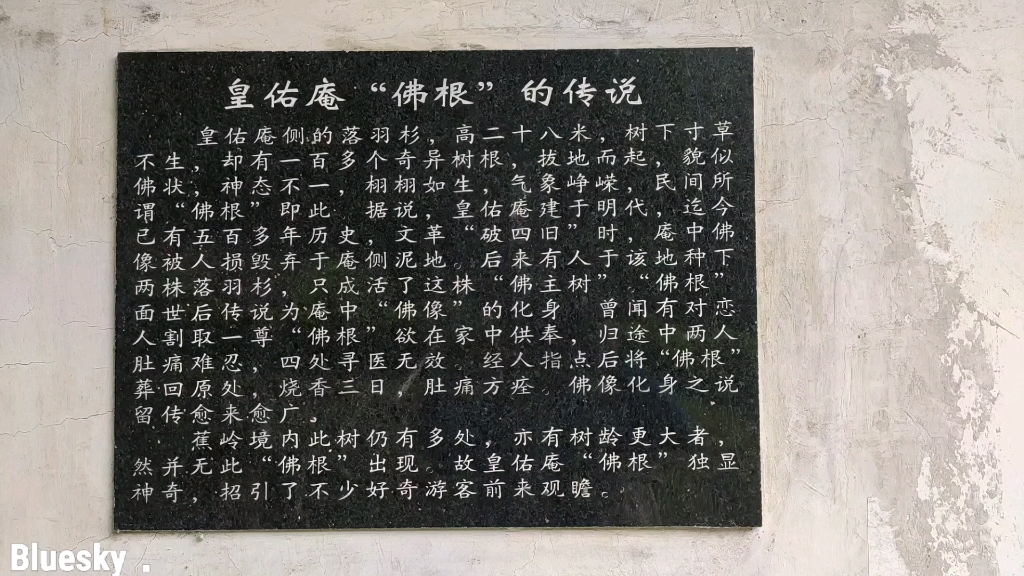 皇佑庵“佛根”的传说
皇佑庵侧的落羽杉，高二十八米，树下寸草
不生，却有一百多个奇异树根，拔地而起，貌似
佛状，神态不一，栩栩如生，气象峥嵘，民间所
谓“佛根”即此 据说，皇佑庵建于明代，迄今
已有五百多年历史，文革“破四旧”时，庵中佛
像被人损毁弃于庵侧泥地。后来有人于该地种下
两株落羽杉，只成活了这株“佛王树”“佛根”
面世后传说为庵中“佛像”的化身 曾闻有对恋
人割取一尊“佛根”欲在家中供奉，归途中两人
肚痛难忍，四处寻医无效。经人指点后将“佛根”
葬回原处，烧香三日，肚痛方痊。佛像化身之说
留传愈来愈广。
蕉岭境内此树仍有多处，亦有树龄更大者，
然并无此“佛根”出现。故皇佑庵“佛根”独显
神奇，招引了不少好奇游客前来观瞻。
Bluesky .